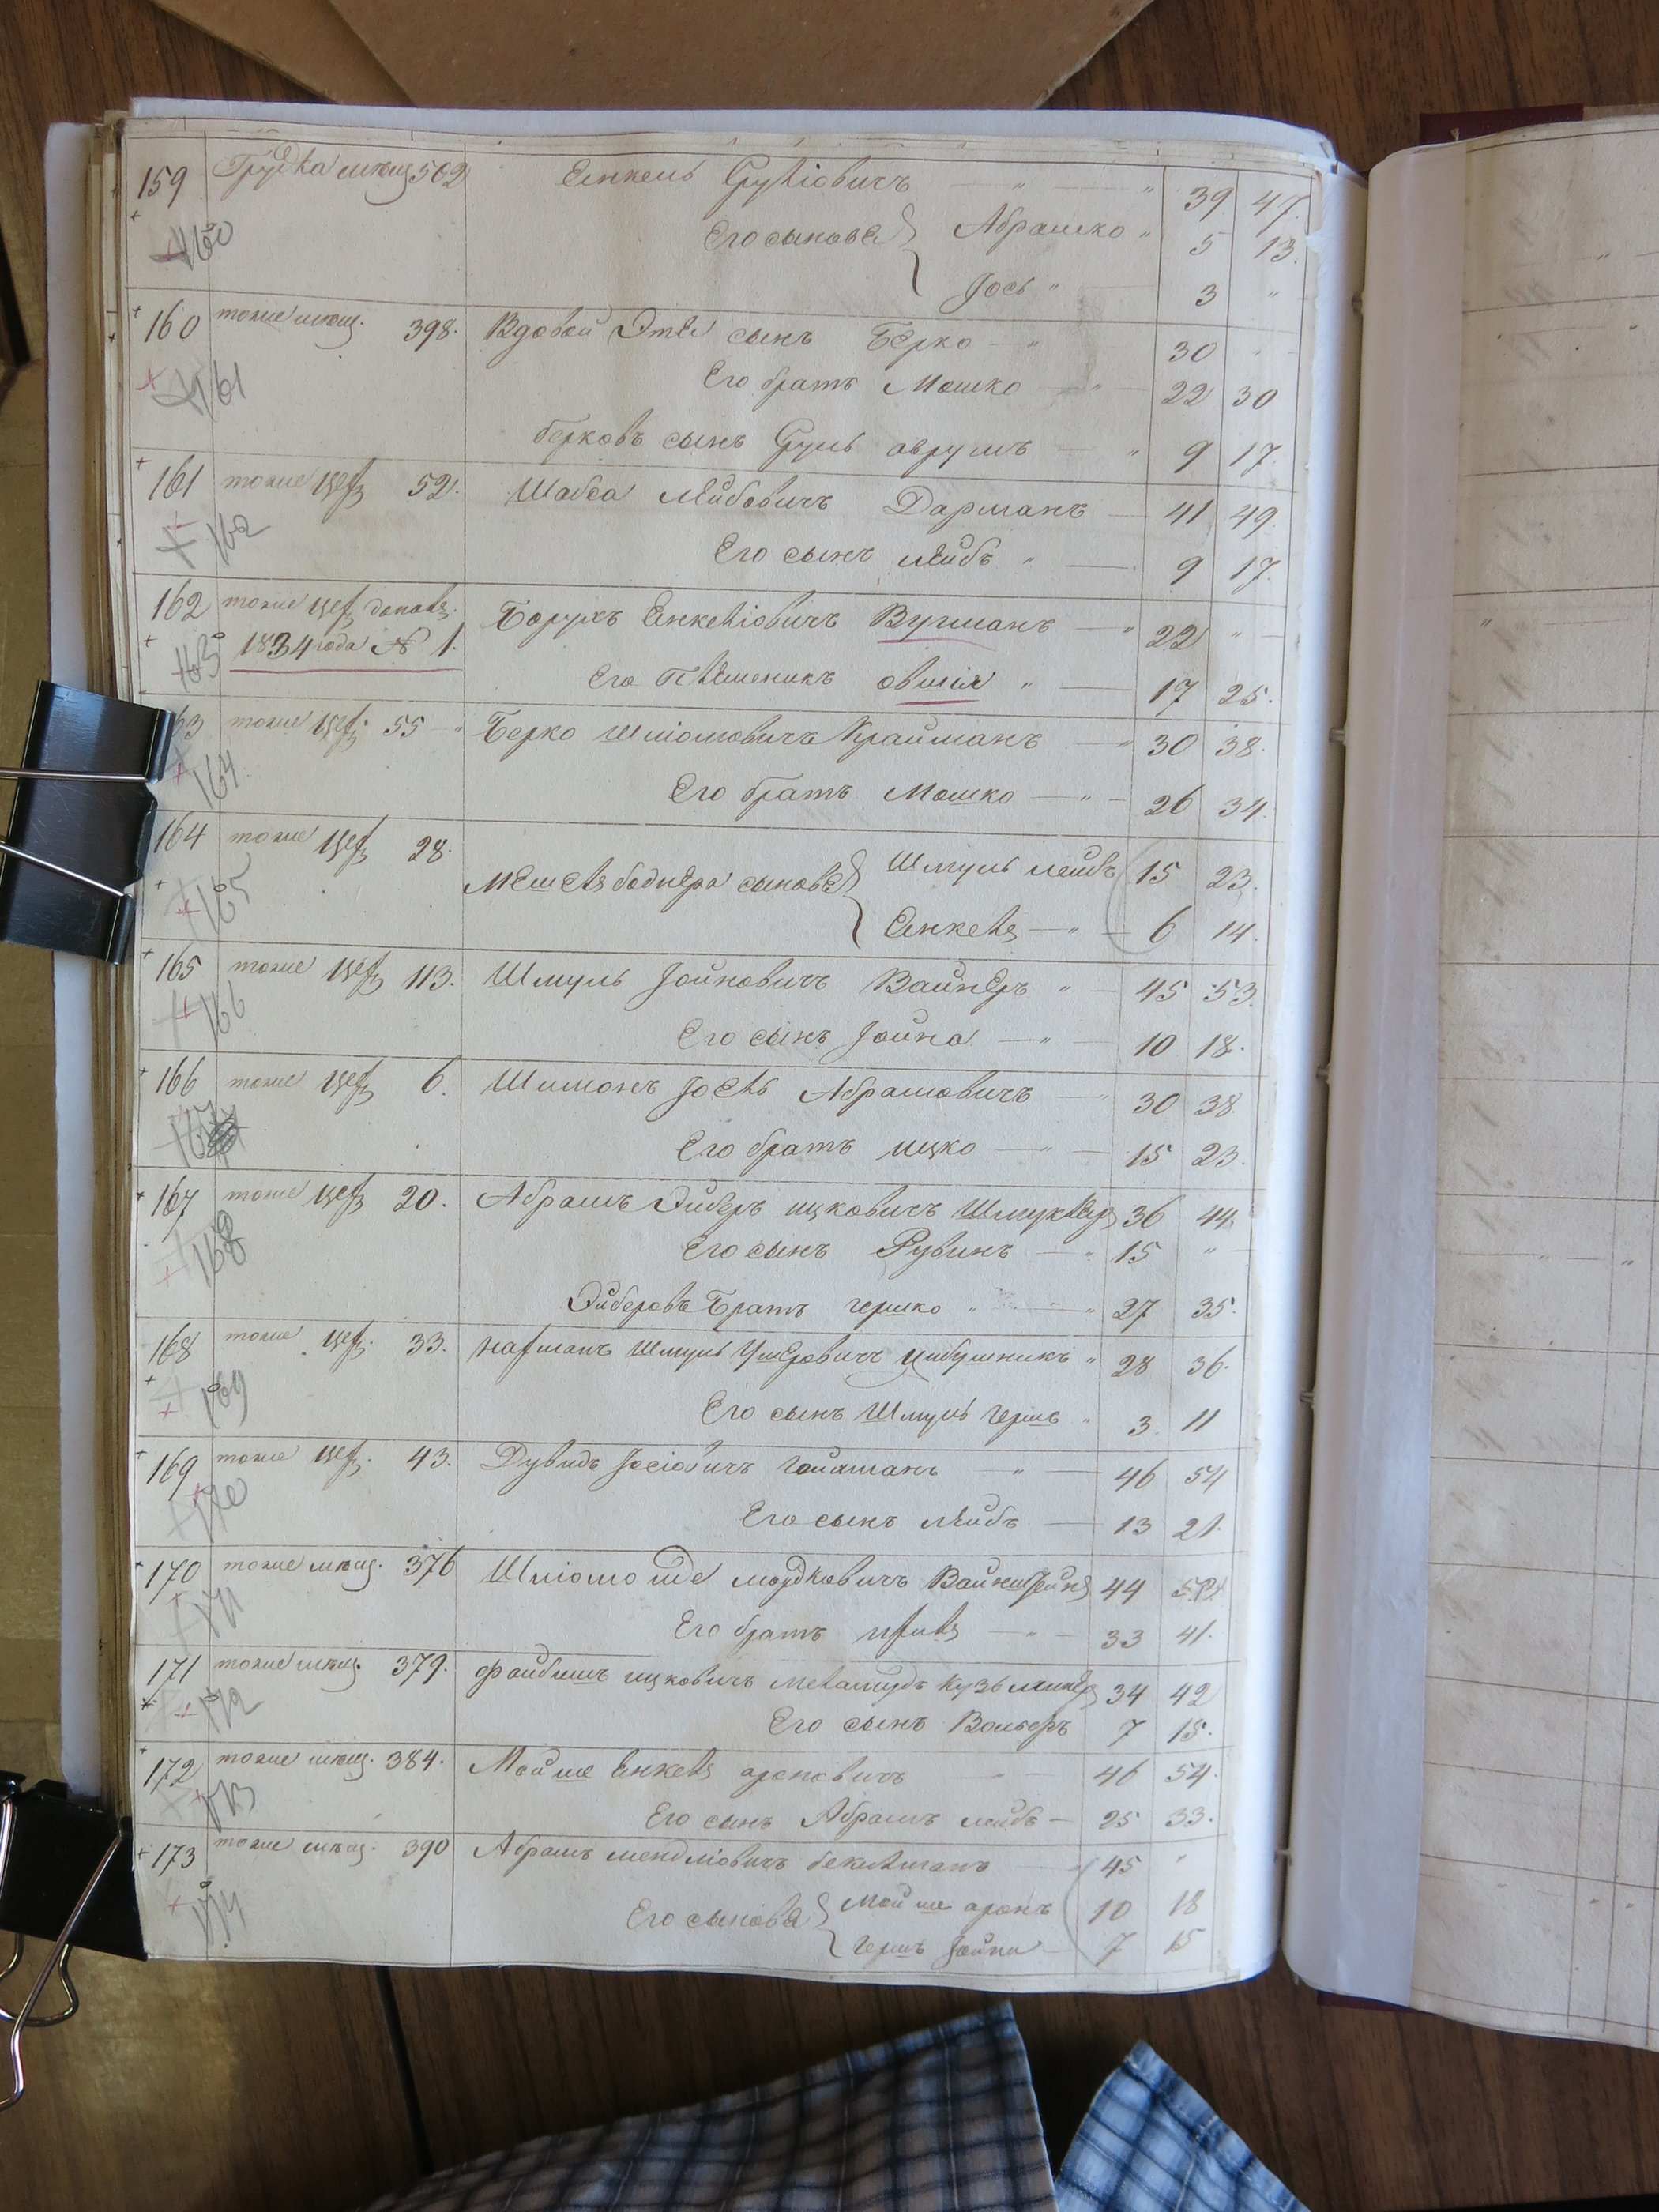 159 мѣщ 502 Енкель Сруліовичъ — " " 39 47.
160 Его сыновя { Абрашко " 5 13.
Іось " 3 "
160 тоже мѣщ. 398. Вдовой Этли сынъ Берко — " 30 "
161 Его братъ Мошко — " 22 30
берковъ сынъ Сруль аврумъ — " 9 17.
161 тоже цех 52. Шабса Лейбовичъ Дарманъ — 41 49.
162 Его сынъ лейбъ " — 9 17.
162 тоже цех допол. Борухъ Енкеліовичъ Вугманъ — " 22 " —
163 1834 года № 1. Его Племеникъ овшія " — 17 25.
63 тоже цех. 55 " Берко Шліомовичъ Крайманъ — " 30 38.
164 Его братъ Мошко — " — 26 34.
164 тоже цех 28. Шмуль лейбъ 15 23.
165 боднера сыновя {
Енкель — " 6 14.
165 тоже цех 113. Шмуль Іойновичъ Вайнеръ " — 45 53.
166 Его сынъ Іойна — " — 10 18.
166 тоже цех 6. Шимонъ Іосель Абрамовичъ — " 30 38.
167 Его братъ ицко — " — 15 23.
167 тоже цех 20. Абрамъ Эйберъ ицковичъ Шмуклер 36 44.
168 Его сынъ Рувинъ — " 15 " —
Эйберовъ Братъ гершко " — " 27 35.
168 тоже цех. 33. Нахманъ Шмуль Ушеровичъ " 28 36.
169 Его сынъ Шмуль герш " 3 11
169 тоже цех. 43. Дувидъ Іосіовичъ — " — 46 54
170 Его сынъ лейбъ — 13 21.
170 тоже мѣщ. 376 Шліомо мордковичъ 44
171 Его братъ — " — 33 41.
171 тоже мѣщ. 379. файбишъ ицковичъ 34 42
172 Его сынъ Вольфъ 7 15.
172 тоже мѣщ. 384. Мойше Енкель ароновичъ " — 46 54.
173 Его сынъ Абрамъ лейбъ — 25 33.
173 тоже мѣщ. 390 Абрамъ мендліовичъ 45 "
174 Его сыновя { Мойше аронъ 10 18
гершъ Іойна — 7 15